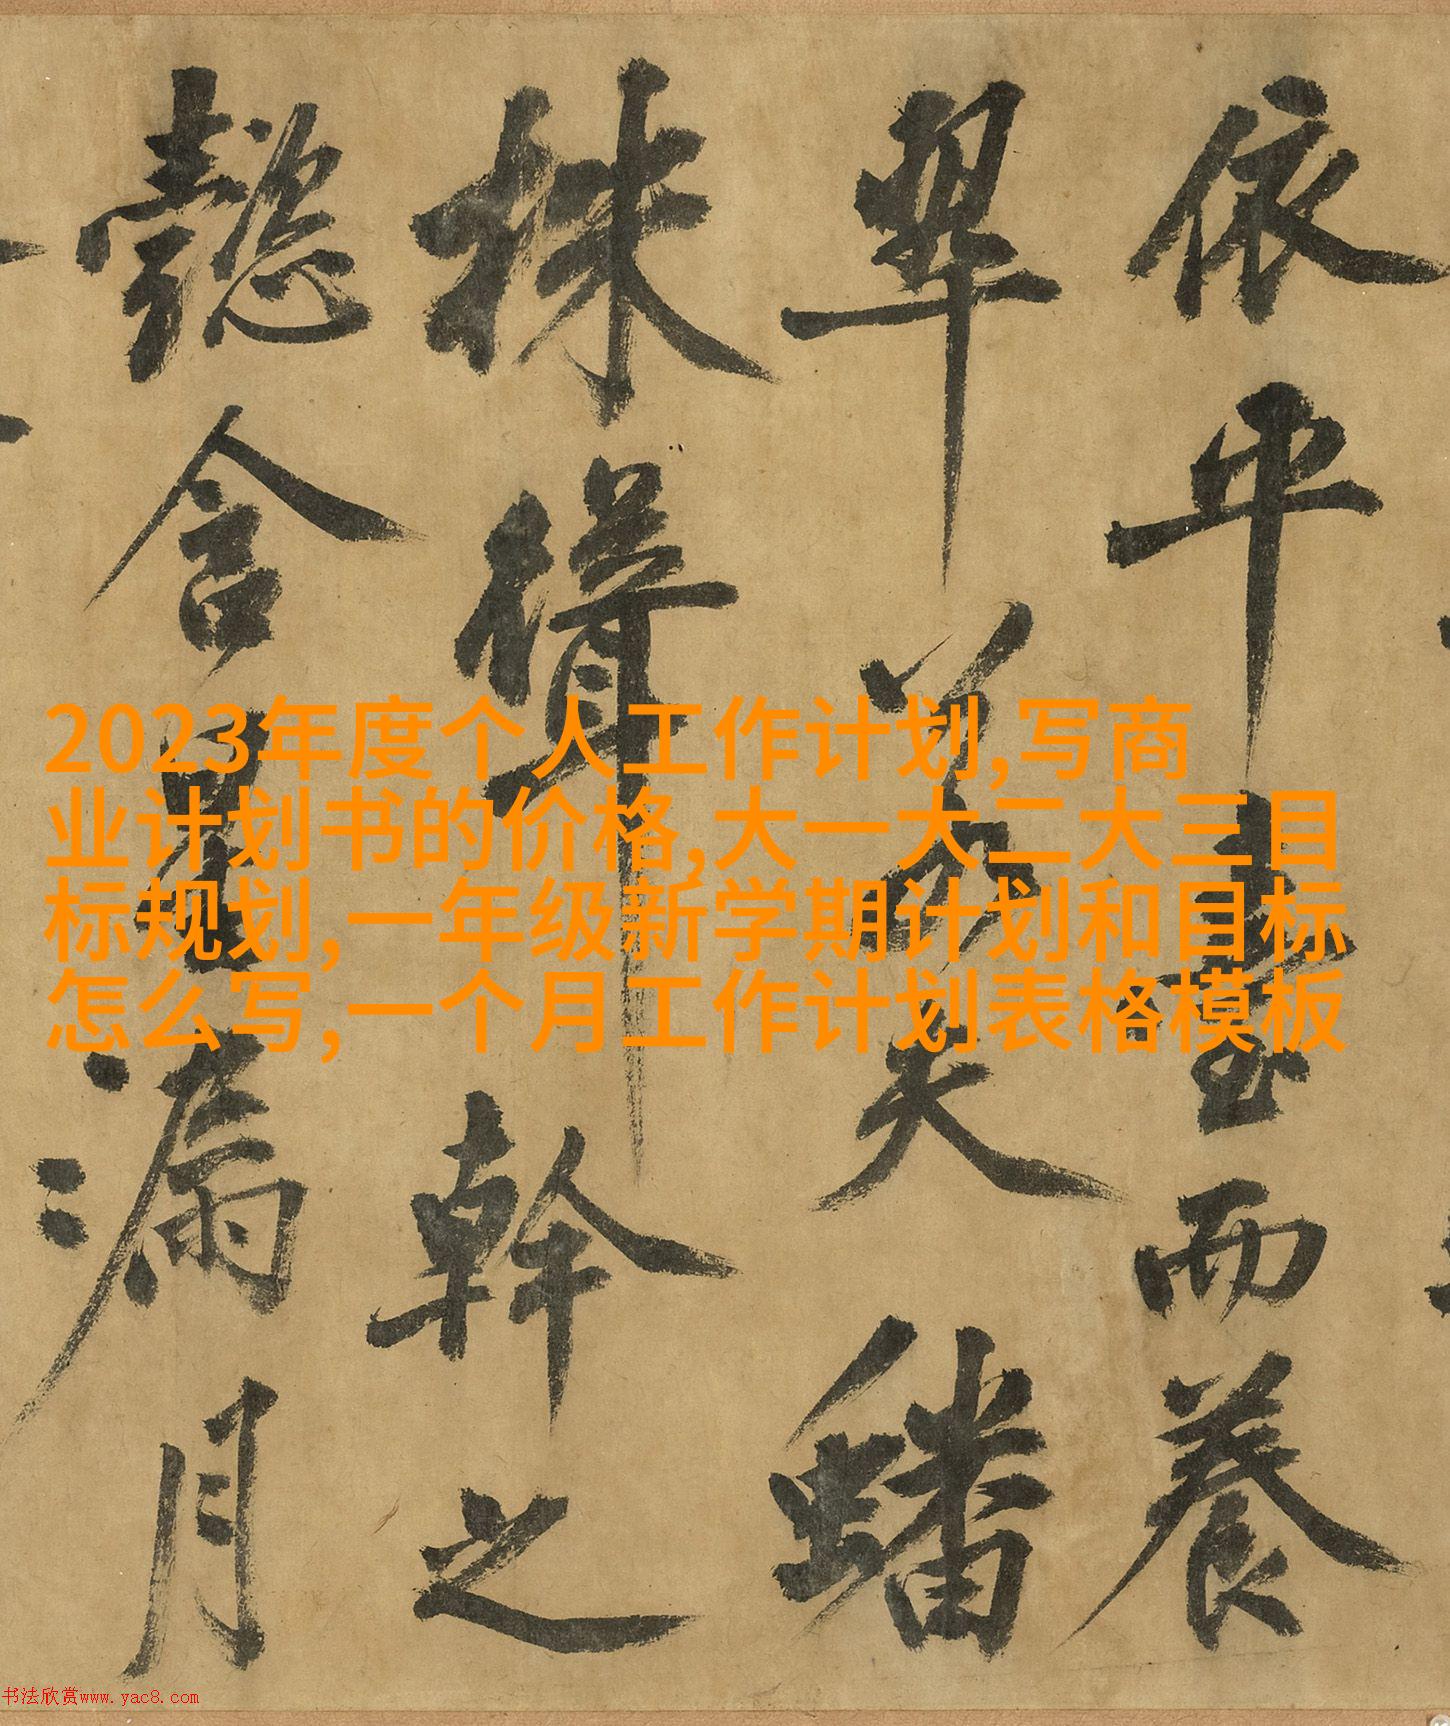 依平臺而養
翠若夫蟠
株聳幹之
懿含星漏月
2023年度个人工作计划,写商
业计划书的价格,大一大二大三目
标规划,一年级新学期计划和目标
怎么写,一个月工作计划表格模板
书法欣赏www.yac8.com